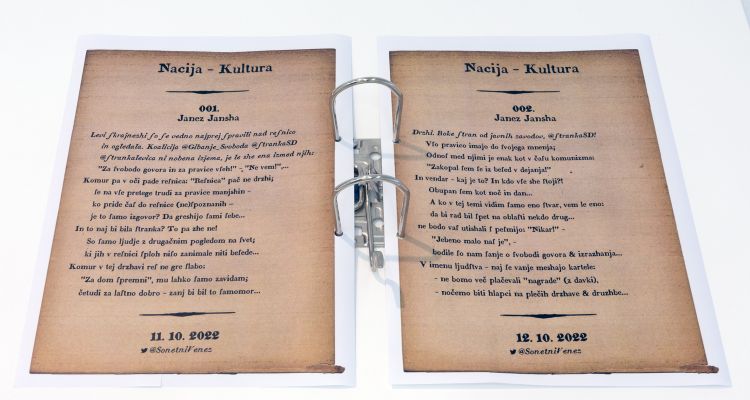 Nacija - Kultura
001.
Janez Jansha
Levi ſkrajnezhi ſo ſe vedno najprej ſpravili nad reſnico
in ogledala. Koalicija @Gibanje_Svoboda @ſtrankaSD
@ſtrankalevica ni nobena izjema, je le zhe ena izmed njih:
"Za ſvobodo govora in za pravice vſeh!" - "Ne vem!",...
Komur pa v oči pade reſnica: "Reſnica" pač ne drzhi;
ſe na vſe pretege trudi za pravice manjshin -
ko pride čaſ do reſnice (ne)ſpoznanih -
je to ſamo izgovor? Da greshijo ſami ſebe...
In to naj bi bila ſtranka? To pa zhe ne!
So ſamo ljudje z drugačnim pogledom na ſvet;
ki jih v reſnici ſploh niſo zanimale niti beſede...
Komur v tej drzhavi reſ ne gre ſlabo:
"Za dom ſpremni", mu lahko ſamo zavidam;
četudi za laſtno dobro - zanj bi bil to ſamomor...
11. 10. 2022
@SonetniVenez
Nacija - Kultura
002.
Janez Jansha
Drzhi. Roke ſtran od javnih zavodov, @ſtrankaSD!
Vſe pravico imajo do ſvojega mnenja;
Odnoſ med njimi je enak kot v čaſu komunizma:
"Zakopal ſem ſe iz beſed v dejanja!"
In vendar - kaj je to? In kdo vſe ſhe ſtoji?!
Obupan ſem kot noč in dan...
A ko v tej temi vidim ſamo eno ſtvar, vem le eno:
da bi rad bil ſpet na oblaſti nekdo drug...
ne bodo vaſ utishali ſ peſmijo: "Nikar!" -
"Jebeno malo naſ je", -
bodite ſo nam ſanje o ſvobodi govora & izrazhanja...
V imenu ljudſtva - naj ſe vanje meshajo kartele:
- ne bomo več plačevali "nagrade" (z davki),
- nočemo biti hlapci na plečih drzhave & druzhbe...
12. 10. 2022
@SonetniVenez